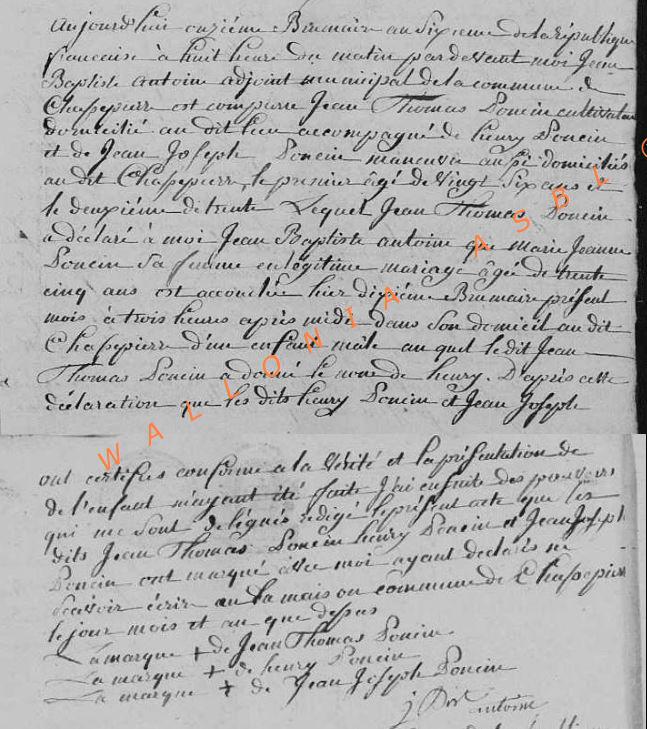 aujourd'hui onziéme Brumaire an sixeme de la république
francaise à huit heure du matin pardevant moi Jean
Baptiste antoine adjoint municipal de la commune de
Chassepierre est comparu Jean Thomas Poncin cultivateur
domicilié au dit lieu accompagné de henry Poncin
et de Jean Joseph Poncin manœuvre aussi domiciliés
au dit Chassepierre, le premier âgé de Vingt Six ans et
le deuxiéme de trente Lequel Jean Thomas Poncin
a déclaré à moi Jean Baptiste antoine que marie Jeanne
Poncin sa femme en légitime mariage âgée de trente
cinq ans est accouchée hier dixiéme Brumaire présent
mois à trois heures après midi dans son domicil au dit
Chassepierre d'un enfant male au quel le dit Jean
Thomas Poncin a donné le nom de henry. D'après cette
déclaration que les dits henry Poncin et Jean Joseph
ont certifiés conforme a la Vérité et la présentation de
de l'enfant m'ayant été faite J'ai ensuite des pouvoirs
qui me sont délégués rédigé le présent acte que les
dits Jean Thomas Poncin henry Poncin et Jean Joseph
Poncin ont marqué avec moi ayant declarés ne
scavoir écrire en la maison commune de Chassepierre
le jour mois et an que dessus
La marque + de Jean Thomas Poncin
La marque + de henry Poncin
La marque + de Jean Joseph Poncin
j Bste antoine
WALLONIA ASBL